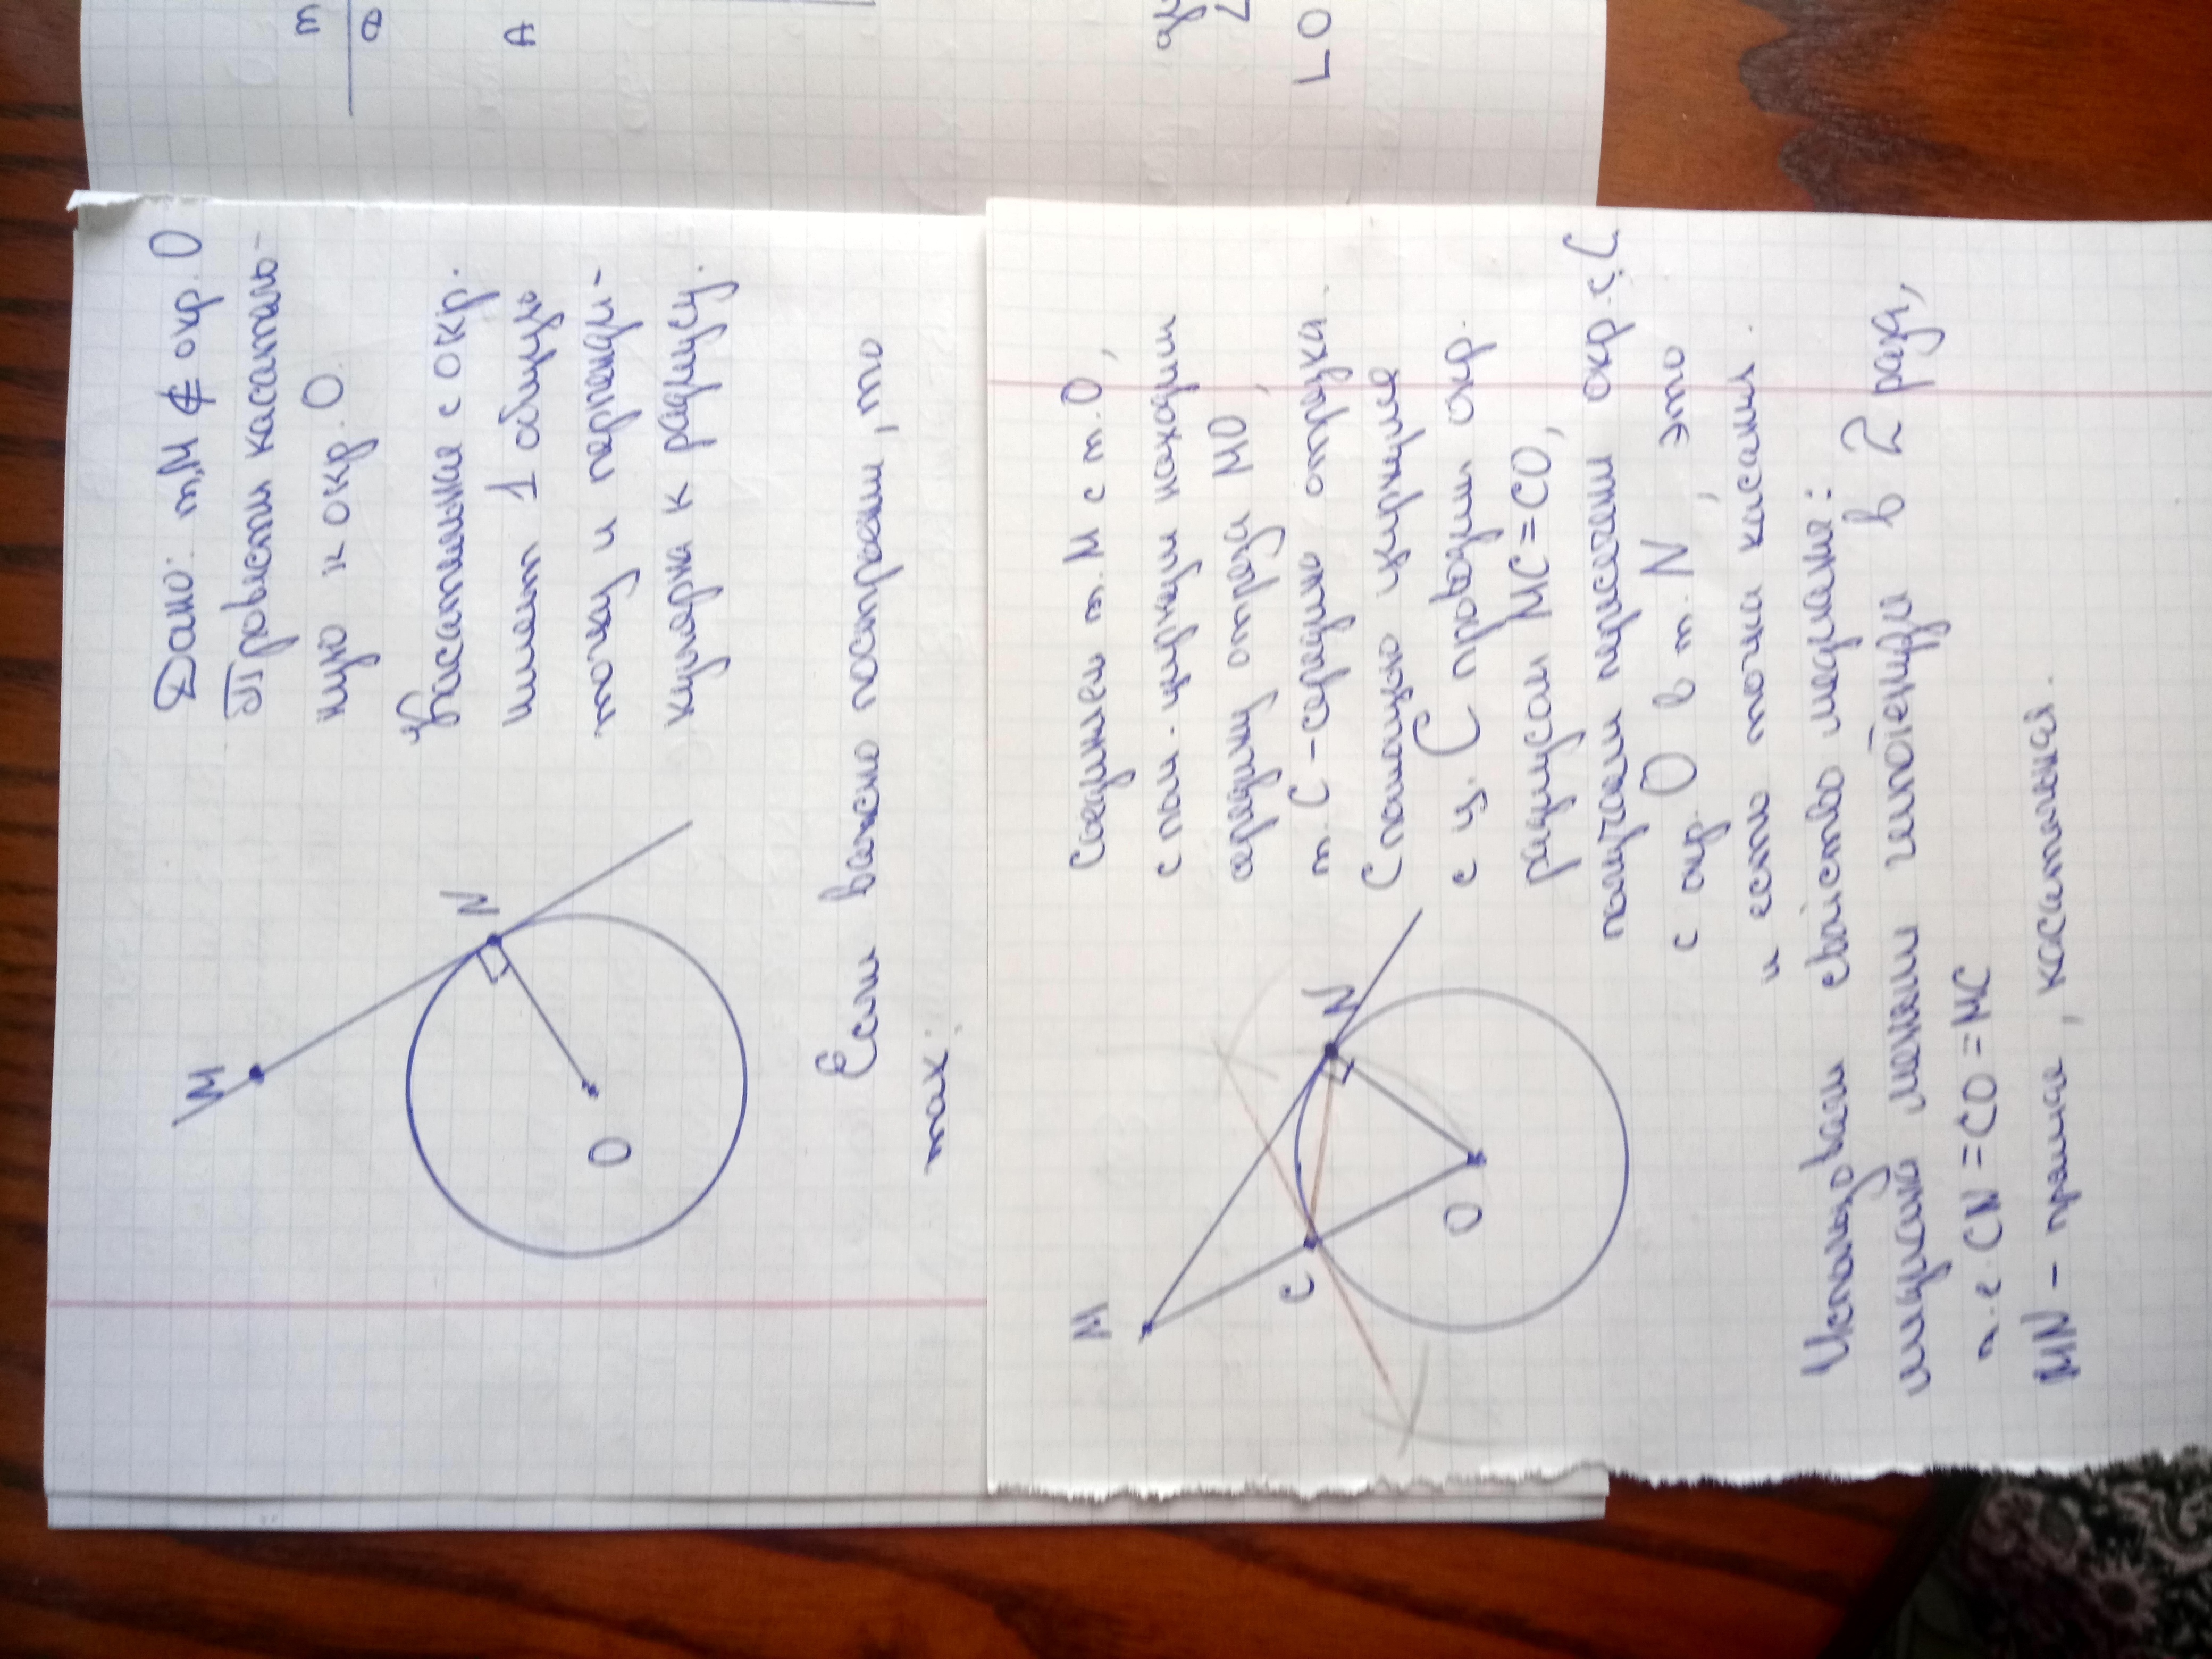 M
N
O
Дано: т.М ∉ окр. О
Провести касатель-
ную к окр. О.
Касательные с окр.
имеет 1 общую
точку и перпенди-
кулярна к радиусу.
Если важно построен, то
так:
M
C
N
O
Соединяем т. М с т. О,
с пом. циркуля находим
середину отрезка МО,
т. С - середина отрезка.
С помощью циркуля
с ц. С проводим окр.
радиусом МС = СО,
получаем пересечен окр. с
с окр. О в т. N, это
и есть точка касания.
Использовали свойство медианы:
медиана меньше гипотенузы в 2 раза,
т. е CN = CO = MC
MN - прямая, касательная.
m
A
LO